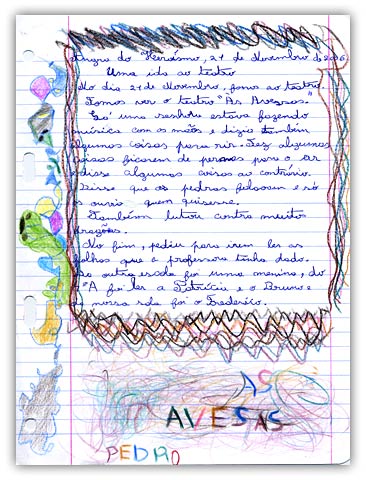 Angra do Heroísmo, 27 de Novembro de 2006
Uma ida ao teatro
No dia 27 de Novembro, fomos ao teatro.
Fomos ver o teatro "As Avessas".
Lá uma senhora estava fazendo
música com as mãos e dizia também
algumas coisas para rir. Fez algumas
coisas ficarem de pernas para o ar
e disse algumas coisas ao contrário.
Disse que as pedras falavam e só
as ouvia quem quisesse.
Também lutou contra muitos
dragões.
No fim, pediu para irem ler as
folhas que a professora tinha dado.
Da outra escola foi uma menina, do
4ºA foi ler a Patrícia e o Bruno e
da nossa sala foi o Frederico.
AS
AVESAS
PEDRO